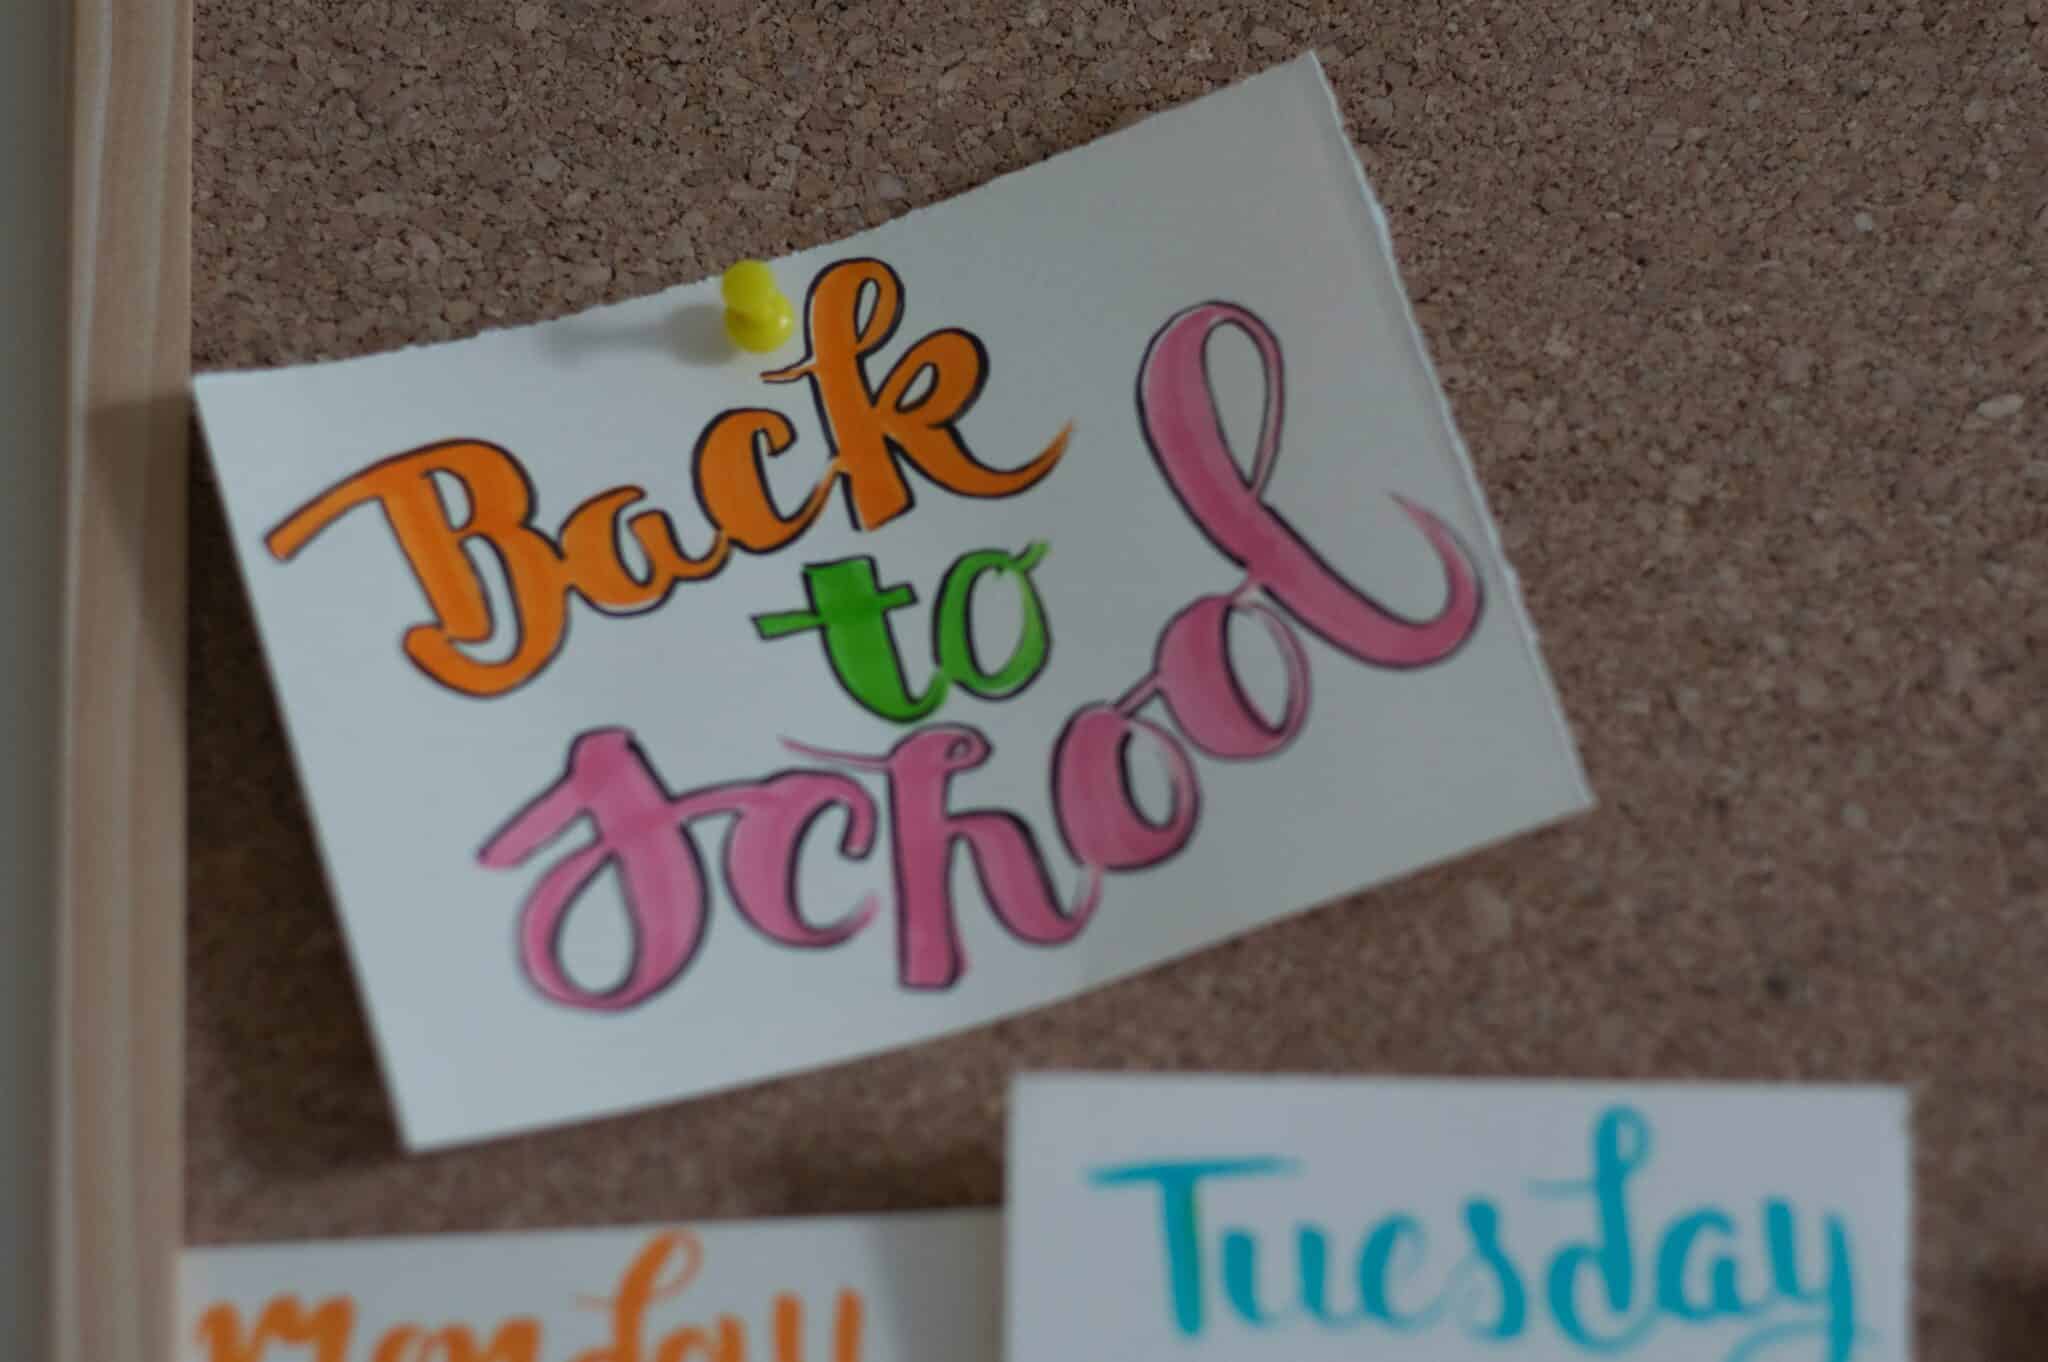 Back
to
school
Monday
Tuesday